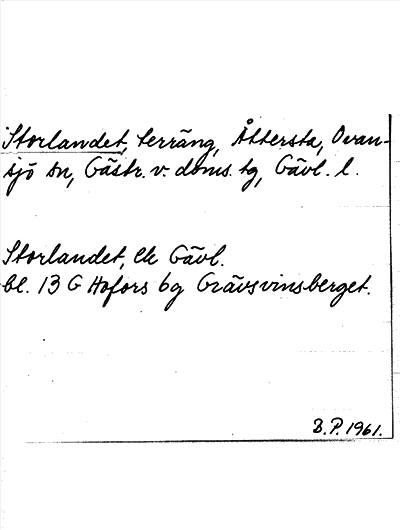 Storlandet, terräng, Åttersta, Ovan-
sjö sn, Gästr. v. doms. tg, Gävl. l.
Storlandet, Ek Gävl.
bl. 13 G Hofors 6g Grävsvinsberget.
B.P. 1961.